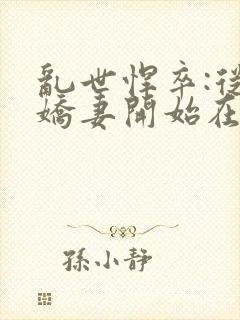 亂世悍卒:從
嬌妻開始在
孫小靜